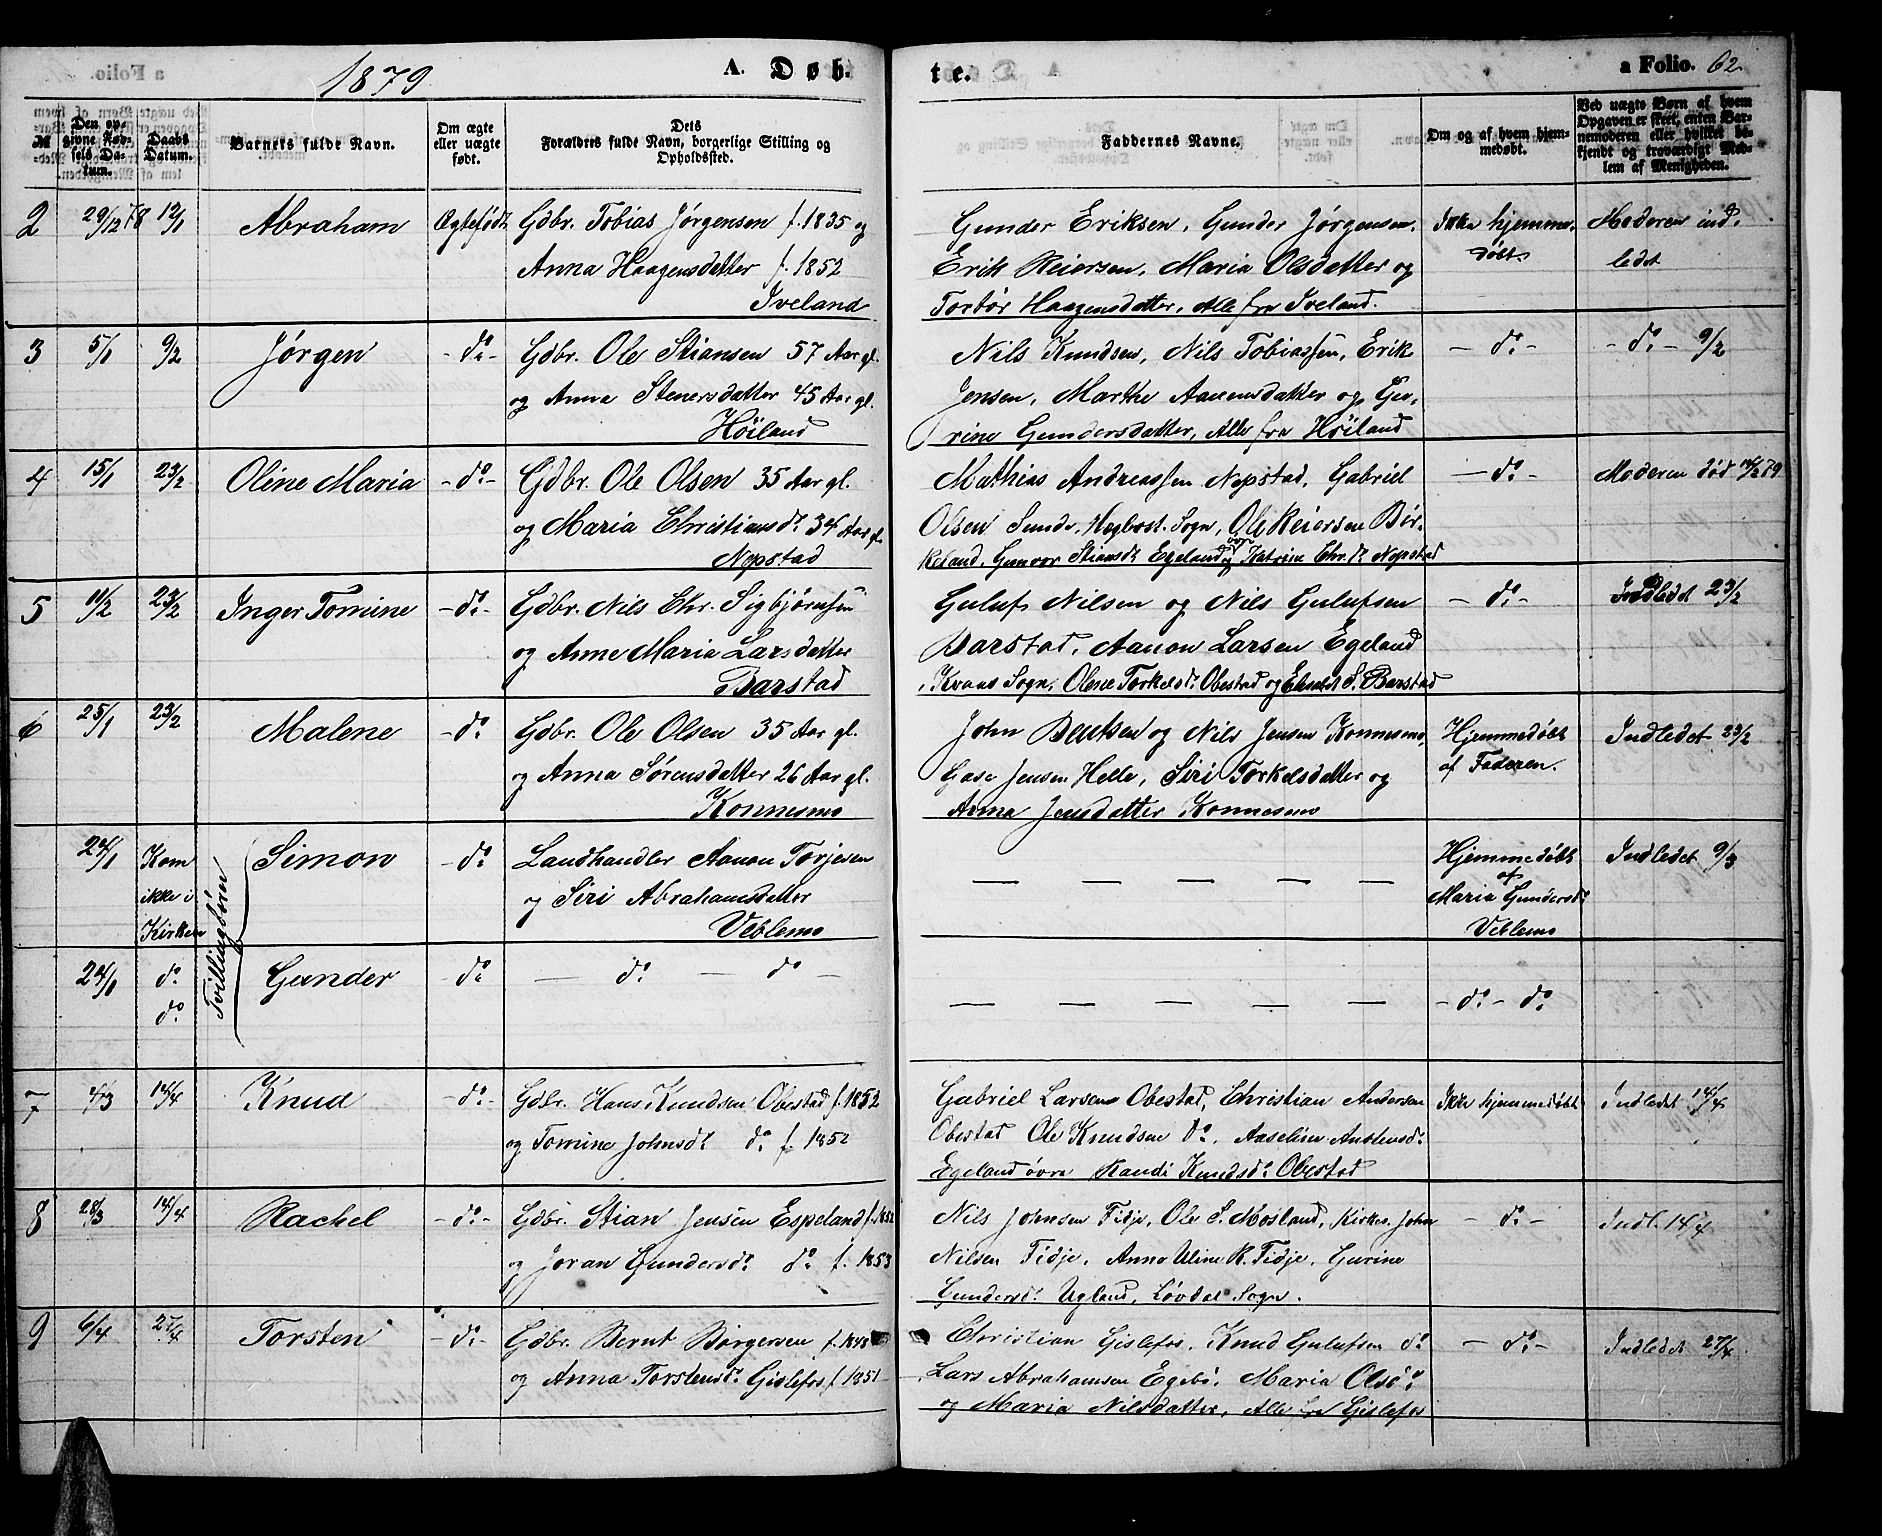 1879
A. Døb.
te.
a Folio. 62.
№
Den opgivne Fødsels Datum.
Daabs Datum.
Barnets fulde Navn.
Om ægte eller uægte født.
Dets Forældres fulde Navn, borgerlige Stilling og Opholdssted.
Faddernes Navne.
Om og af hvem hjemmedøbt.
Ved uægte Børn af hvem Opgaven er skeet, enten Barnemoderen eller hvilket bekjendt og troværdigt Medlem af Menigheden.
2 29/12 78 12/1 Abraham Ægtefødt Gdbr. Tobias Jørgensen f. 1835 og
Anna Haagensdatter f. 1852
Iveland
Gunder Eriksen, Gunder Jørgensen,
Erik Reiersen, Maria Olsdatter og
Torbør Haagensdatter, Alle fra Iveland.
Ikke hjemme-
døbt
Moderen ind-
ledet
3 5/1 9/2 Jørgen - do - Gdbr. Ole Stiansen 57 Aar gl.
og Anna Stenersdatter 45 Aar gl.
Höiland
Nils Knudsen, Nils Tobiassen, Erik
Jensen, Marthe Aanensdatter og Gu-
rine Gundersdatter, Alle fra Höiland
- do -
- do - 9/2
4 15/1 23/2 Oline Maria - do - Gdbr. Ole Olsen 35 Aar gl.
og Maria Christiansdr 34 Aar gl.
Nepstad
Mathias Andreassen Nepstad, Gabriel
Olsen Sunde, Hegbost. Sogn, Ole Reiersen Bir-
keland, Gunvor Stiansdr Egeland øvre og Katrine Chr. dr Nepstad
- do -
Moderen død 14/2 79
5 11/2 23/2 Inger Tomine - do - Gdbr. Nils Chr. Sigbjørnsen
og Anne Maria Larsdatter
Barstad
Guluf Nilsen og Nils Gulufsen
Barstad, Aanon Larsen Egeland
Kvaas Sogn, Olene Torkelsdr Obestad og S. Barstad
- do -
Indledet 23/2
6 25/1 23/2 Malene - do Gdbr. Ole Olsen 35 Aar gl.
og Anna Sørensdatter 26 Aar gl.
Konnesmo
John Bentsen og Nils Jensen Konnesmo,
Jensen Helle, Siri Torkelsdatter og
Anna Jensdatter Konnesmo
Hjemmedøbt
af Faderen.
Indledet 23/2
24/1 Kom
ikke i
Kirken
Tvillingbørn
Simon - do Landhandler Aanon Torjesen
og Siri Abrahamsdatter
Veblemo
— — — — — —
Hjemmedøbt
af
Maria Gundersdr
Veblemo
Indledet 9/3
24/1 do
do
Gunder - do — do — do —
— — — — — —
- do - do
7 4/3 14/4 Knud - do - Gdbr. Hans Knudsen Obestad f. 1852
og Tomine Johnsdr do f. 1852
Gabriel Larsen Obestad, Christian Andersen
Obestad Ole Knudsen do, Aaseline Anstensdr
Egeland øvre Randi Knudsdr Obestad
Ikke hjemmedøbt
Indledet 14/4
8 28/3 14/4 Rachel - do - Gdbr. Stian Jensen Espeland f. 1852
og Joran Gundersdr do f. 1853
Nils Johnsen Fidje, Ole S. Mosland, Kirkes. John
Nilsen Fidje, Anna Uline K. Fidje, Gurine
Gundersdr Ugland, Løvdal Sogn.
- do -
Indl. 14/4
9 6/4 27/4 Torsten - do - Gdbr. Bernt Børgersen f. 1848
og Anna Torstensdr Gislefos f. 1851
Christian Gislefos, Knud Gulufsen do
Lars Abrahamsen Egebø, Maria Olsdr
og Maria Nilsdatter, Alle fra Gislefos
- do -
Indledet 27/4